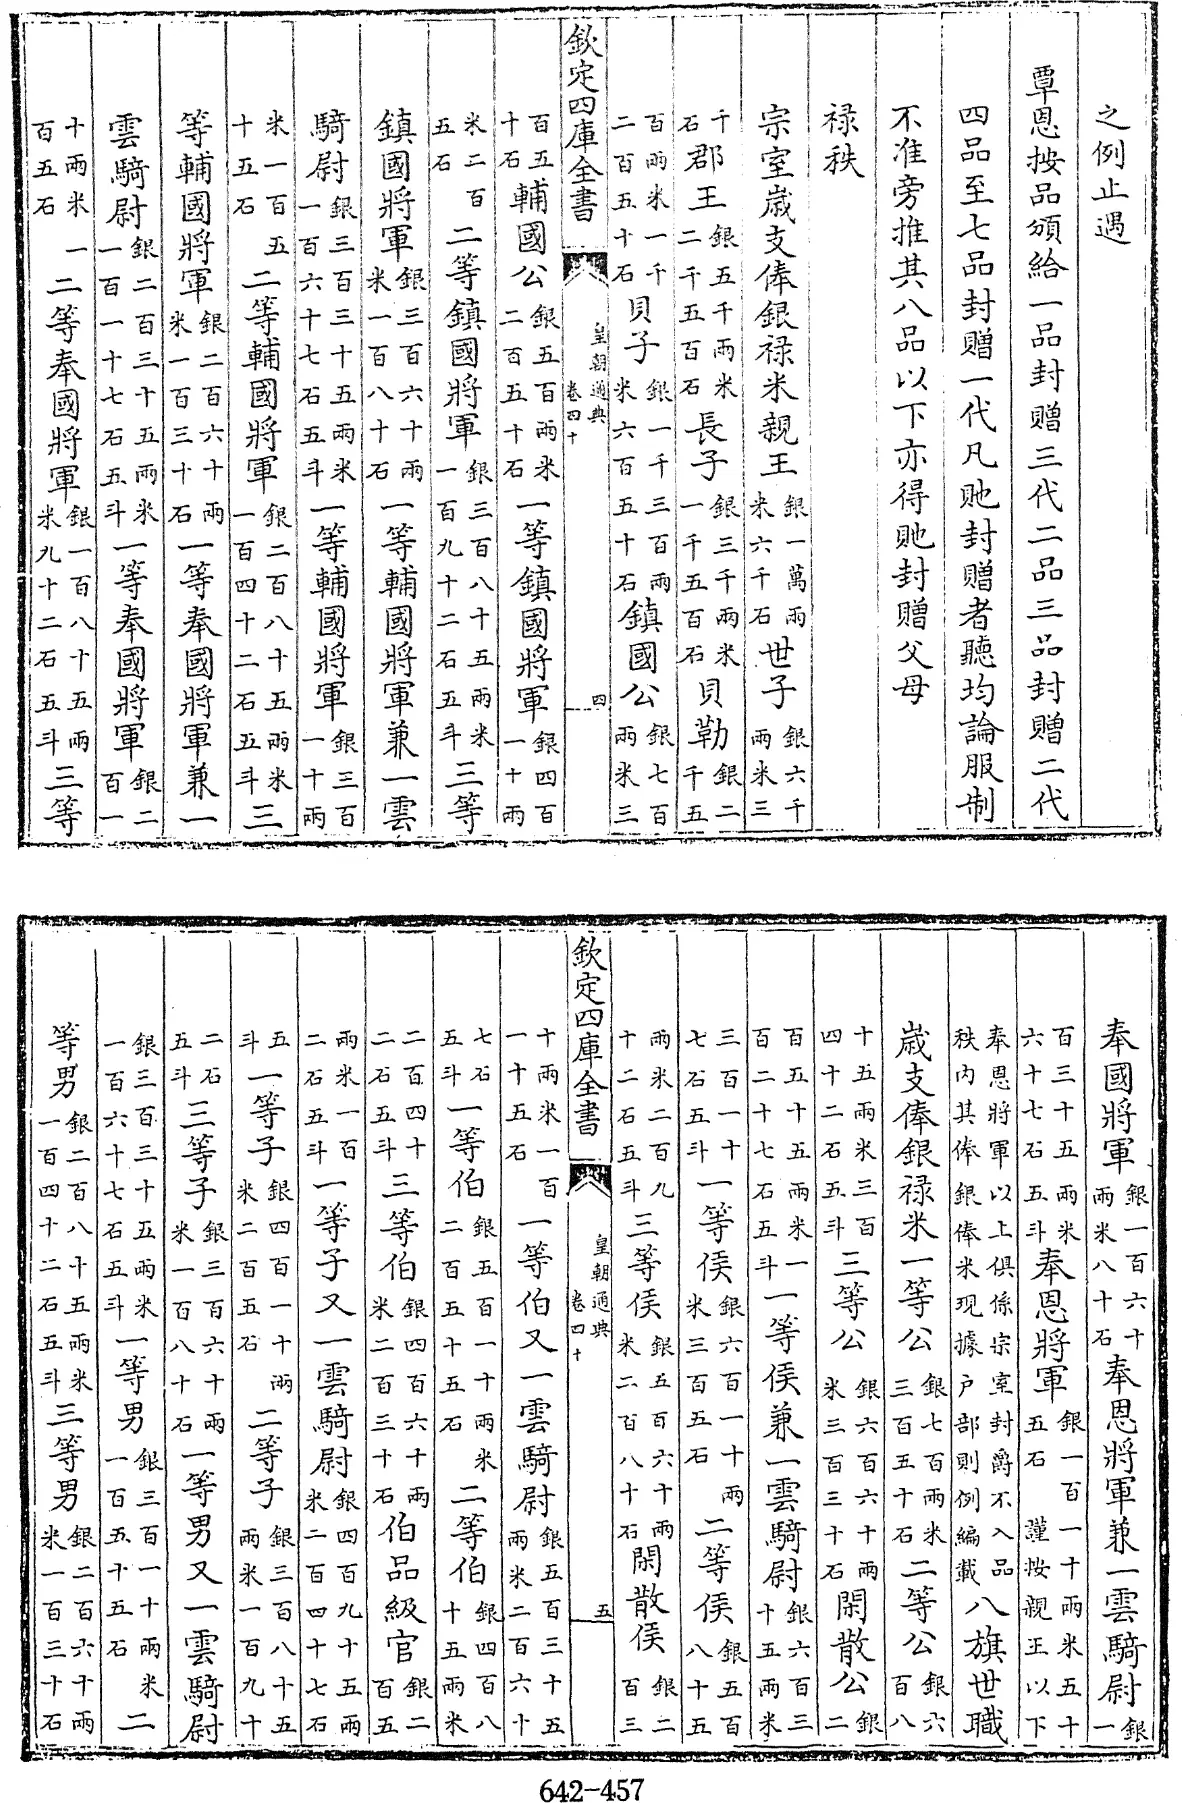 之例止遇
覃恩按品頒給一品封贈三代二品三品封贈二代
四品至七品封贈一代凡貤封贈者聽均論服制
不准旁推其八品以下亦得貤封贈父母
禄秩
宗室歲支俸銀禄米親王銀一萬兩米六千石世子銀六千兩米三
千石郡王銀五千兩米二千五百石長子銀三千兩米一千五百石貝勒銀二千五
百兩米一千二百五十石貝子銀一千三百兩米六百五十石鎮國公銀七百兩米三
欽定四庫全書 皇朝通典 卷四十 四
百五十石輔國公銀五百兩米二百五十石一等鎮國將軍銀四百一十兩
米二百五石二等鎮國將軍銀三百八十五兩米一百九十二石五斗三等
鎮國將軍銀三百六十兩米一百八十石一等輔國將軍兼一雲
騎尉銀三百三十五兩米一百六十七石五斗一等輔國將軍銀三百一十兩
米一百五十五石二等輔國將軍銀二百八十五兩米一百四十二石五斗三
等輔國將軍銀二百六十兩米一百三十石一等奉國將軍兼一
雲騎尉銀二百三十五兩米一百一十七石五斗一等奉國將軍銀二百一
十兩米一百五石二等奉國將軍銀一百八十五兩米九十二石五斗三等
奉國將軍銀一百六十兩米八十石奉恩將軍兼一雲騎尉銀一
百三十五兩米六十七石五斗奉恩將軍銀一百一十兩米五十五石 謹按親王以下
奉恩將軍以上俱係宗室封爵不入品秩内其俸銀俸米現據户部則例編載八旗世職
歲支俸銀禄米一等公銀七百兩米三百五十石二等公銀六百八
十五兩米三百四十二石五斗三等公銀六百六十兩米三百三十石閑散公銀二
百五十五兩米一百二十七石五斗一等侯兼一雲騎尉銀六百三十五兩米
三百一十七石五斗一等侯銀六百一十兩米三百五石二等侯銀五百八十五
兩米二百九十二石五斗三等侯銀五百六十兩米二百八十石閑散侯銀二百三
欽定四庫全書 皇朝通典 卷四十 五
十兩米一百一十五石一等伯又一雲騎尉銀五百三十五兩米二百六十
七石五斗一等伯銀五百一十兩米二百五十五石二等伯銀四百八十五兩米
二百四十二石五斗三等伯銀四百六十兩米二百三十石伯品級官銀二百五
兩米一百二石五斗一等子又一雲騎尉銀四百九十五兩米二百四十七石
五斗一等子銀四百一十兩米二百五石二等子銀三百八十五兩米一百九十
二石五斗三等子銀三百六十兩米一百八十石一等男又一雲騎尉
銀三百三十五兩米一百六十七石五斗一等男銀三百一十兩米一百五十五石二
等男銀二百八十五兩米一百四十二石五斗三等男銀二百六十兩米一百三十石
642-457